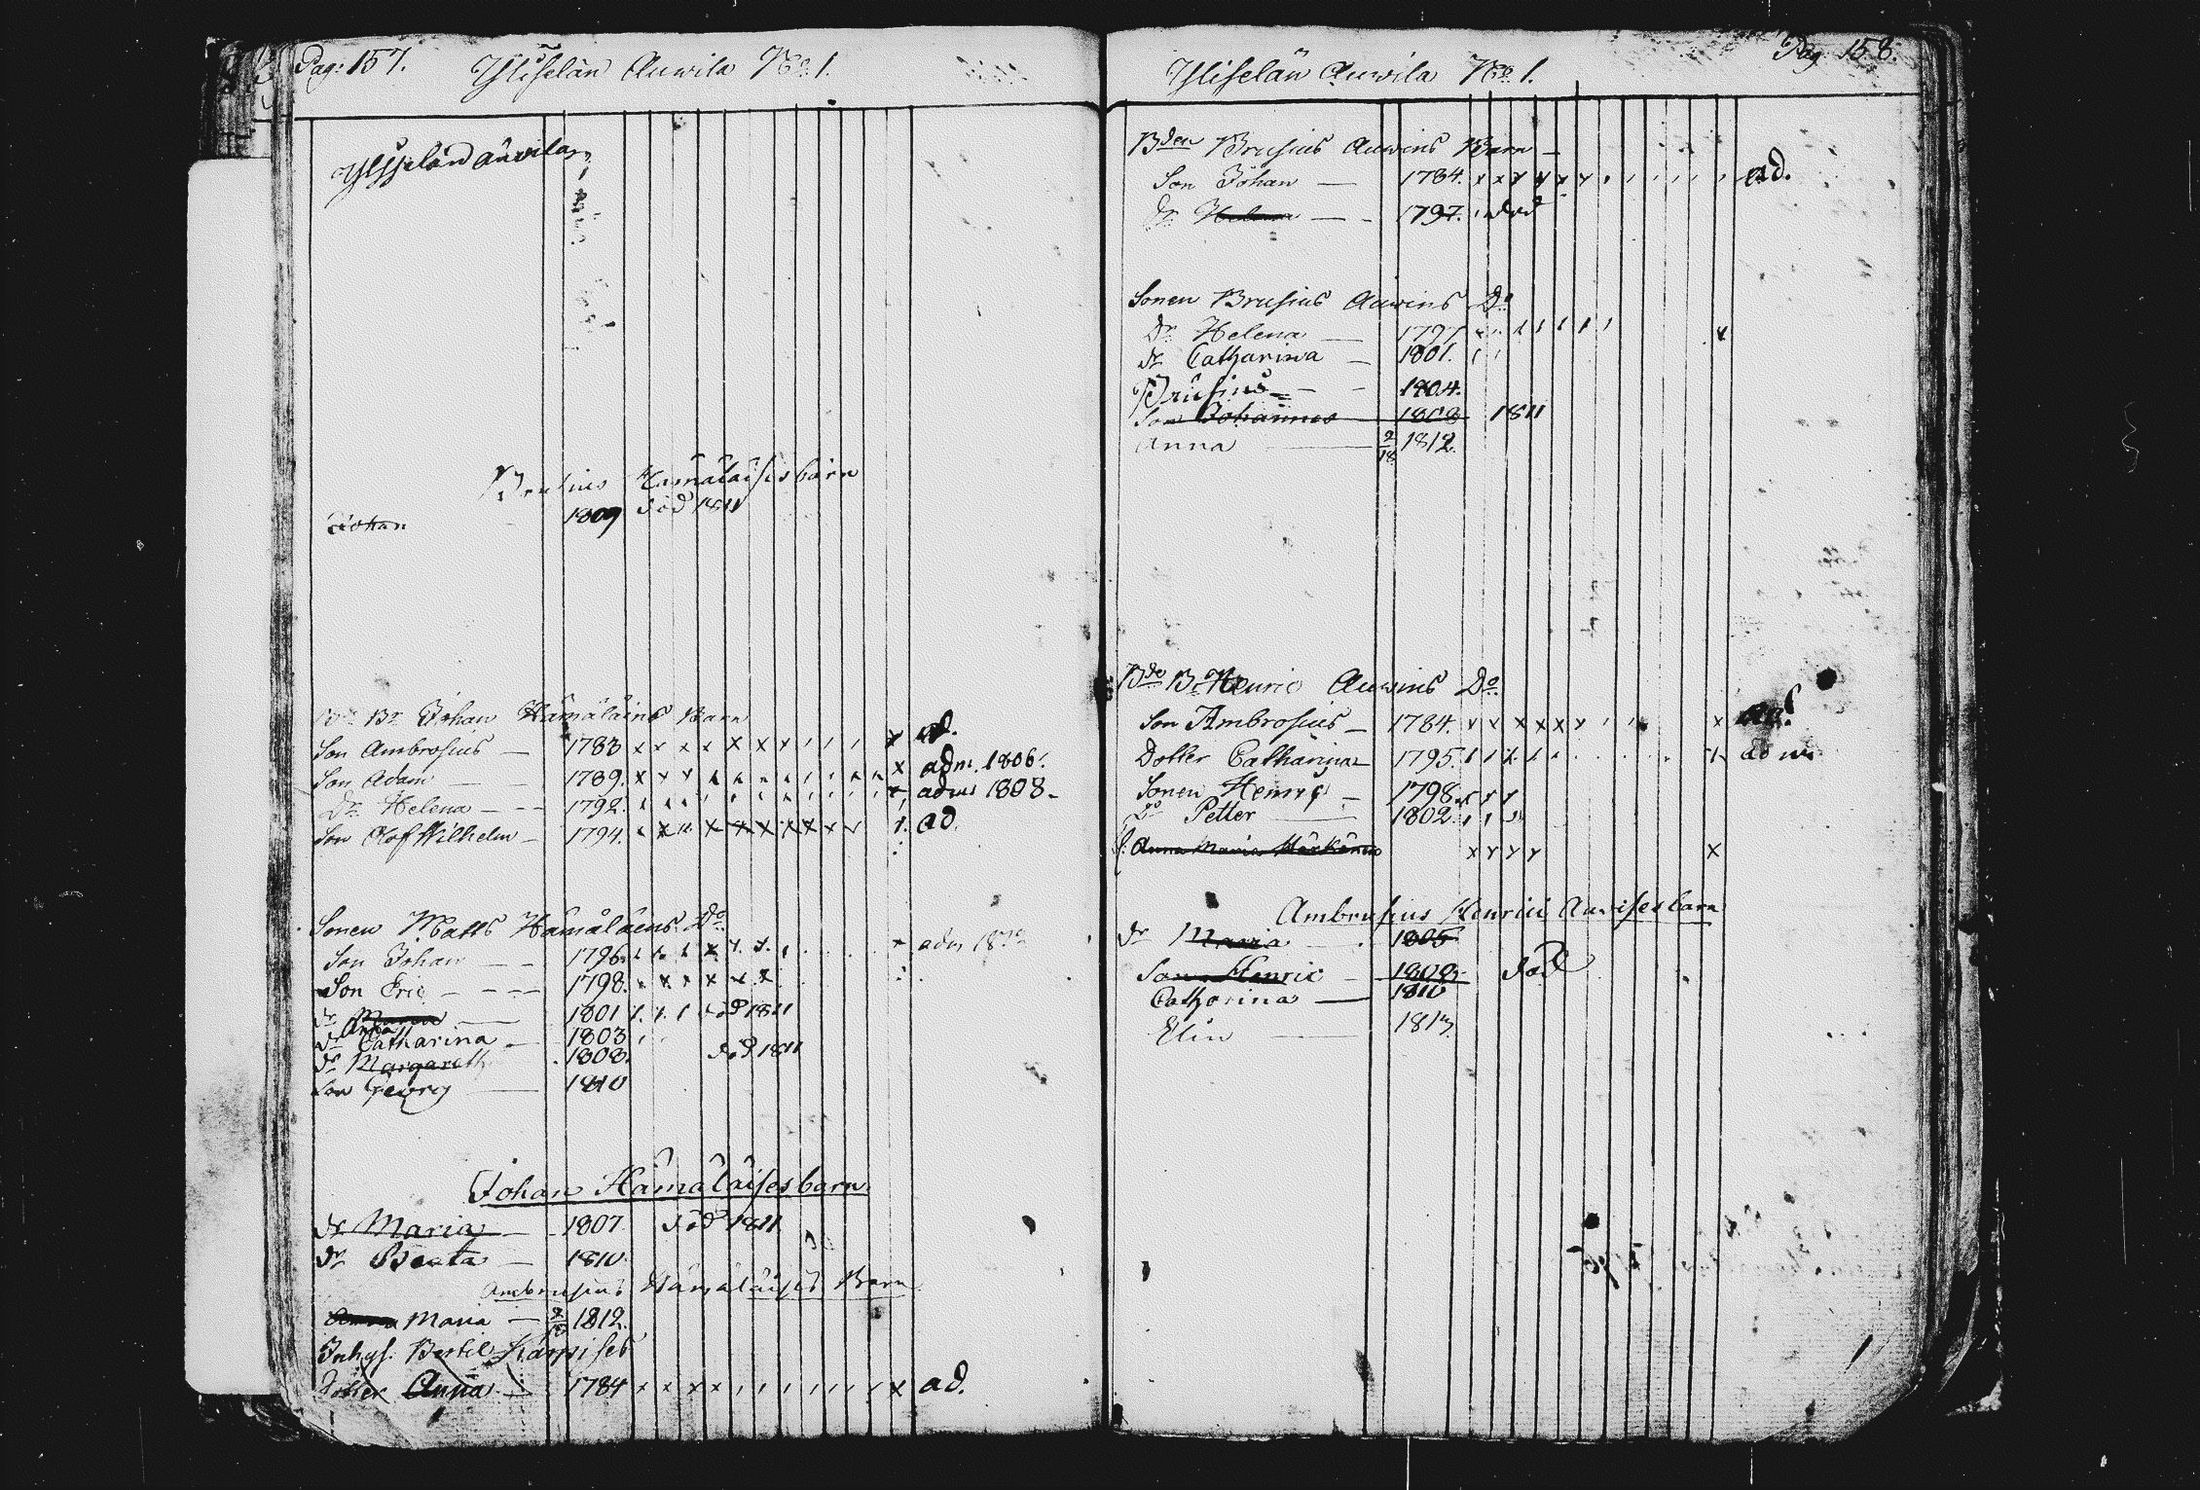 Pag: 157. Yliselän Auwila No 1.
Ylisselän auvila
Brusius Hämäläisis barn
Johan 1809 död 1811
Br Johan Hämäläins Barn
Son Ambrosius — 1783 x x x x x x x ad.
Son Adam — 1789. x x x adm. 1806.
Dr Helena — 1792. adm 1808.
Son Olof Wilhelm — 1794. x x x x x x x ad.
Sonen Matts Hämäläins Do
Son Johan — 1796. adm
Son Eric — 1798. x x x x x x
dr Maria — 1801 död 1811
Anna
dr Catharina — 1803
dr Margareth 1808. död 1811
Son Georg — 1810
Johan Hämäläises barn
dr Maria — 1807. död 1811
dr Beata — 1810
Ambrusius Hämäläises Barn
Anna Maria — 1812.
Inhys. Bertil Karpises
Dotter Anna — 1784 x x x x x ad.
Yliselän Auwila No 1. Pag 158.
Bden Brusius Auwins Barn —
Son Johan — 1784. x x x x x x ad.
Dr Helena — 1797. död
Sonen Brusius Auwins Do
Dr Helena — 1797
dr Catharina — 1801.
Brusius — 1804.
Son Johannes 1808 1811
Anna — 2/18 1812.
Bde B. Henric Auwins Do
Son Ambrosius — 1784. x x x x x x x ad.
Dotter Catharina — 1795. adm
Sonen Henric — 1798.
Do Petter — 1802.
Anna Maria x x x x x
Ambrusius Henrici Auvises barn
dr Maria — 1805
Son Henric — 1808. död
Catharina — 1810
Elin — 1813